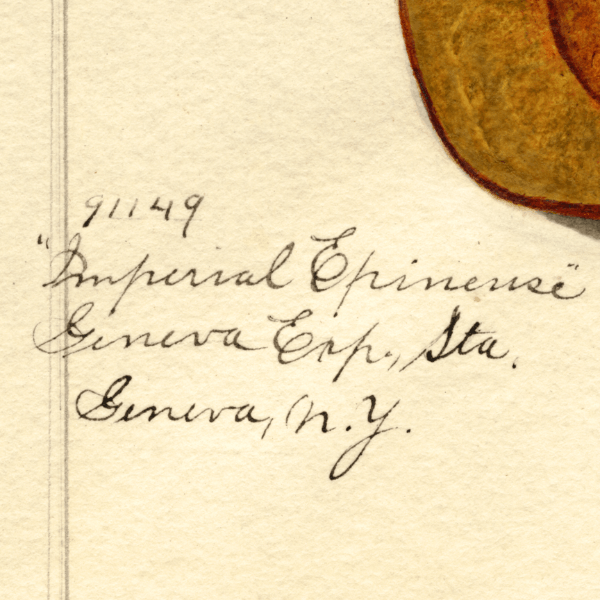 91149
"Imperial Epineuse"
Geneva Exp., Sta.
Geneva, N.Y.